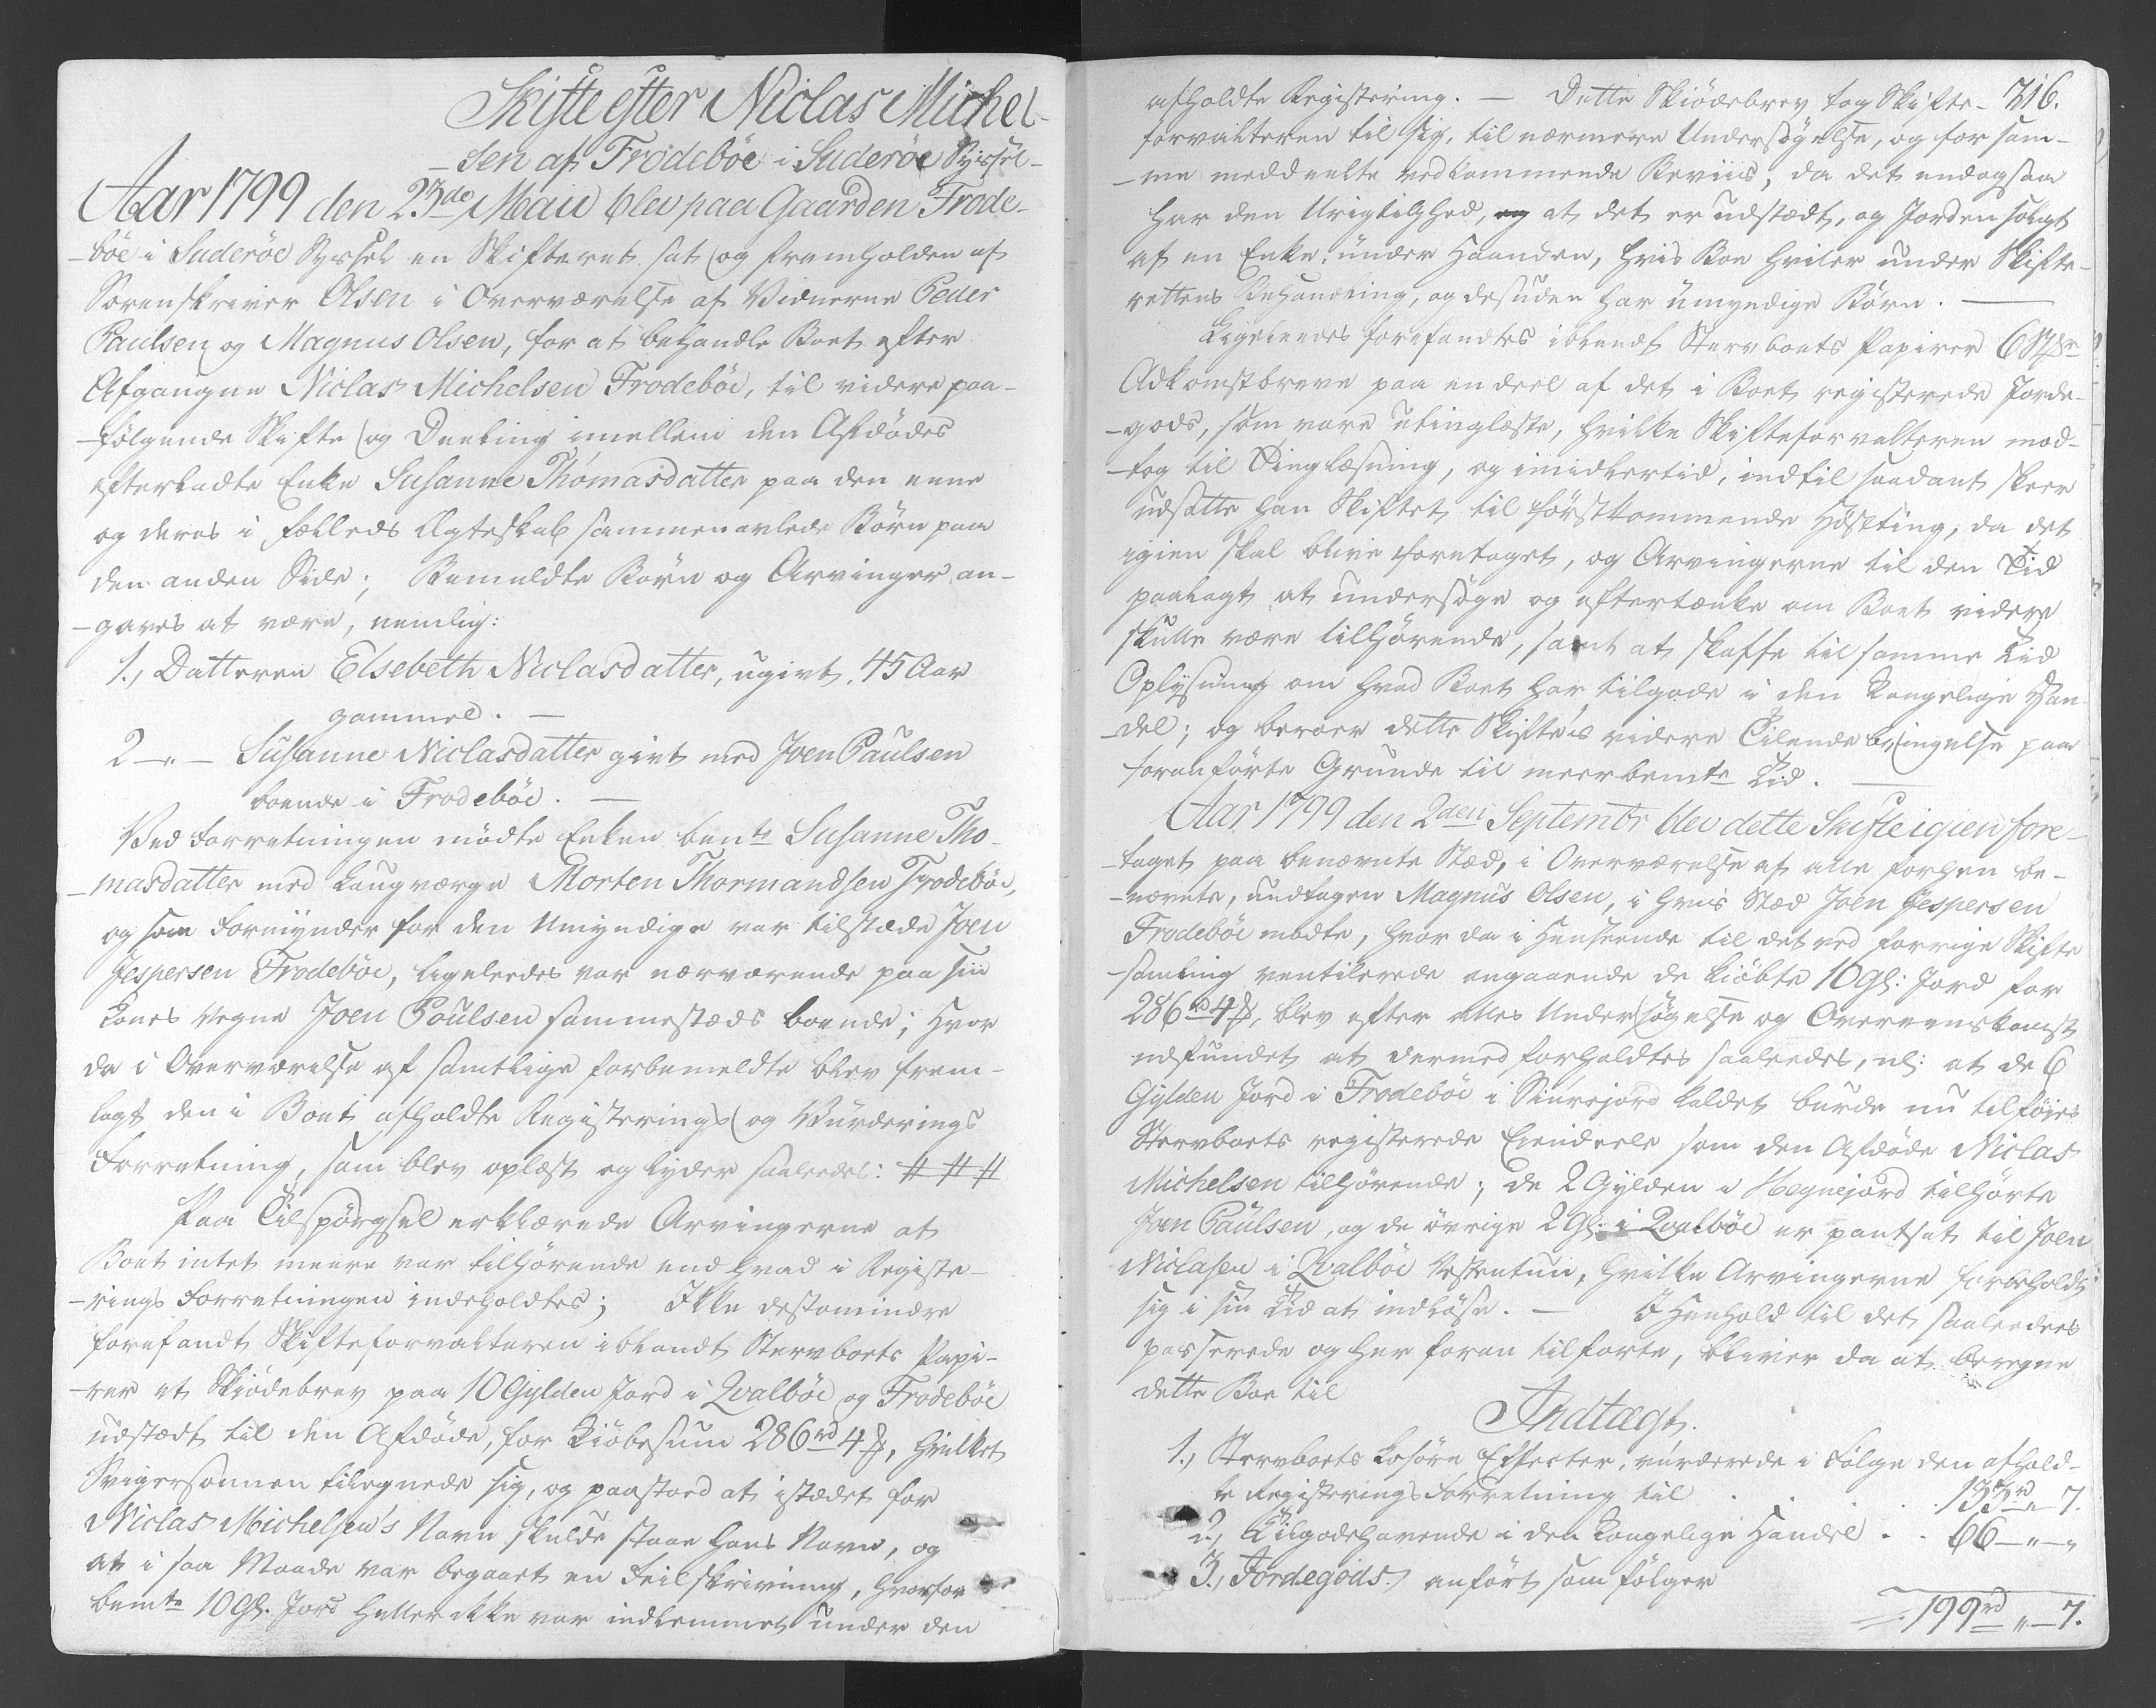 Skifte efter Niclas Michel-
-sen af Frodebøe i Suderøe Syssel-
Aar 1799 den 23de Maii blev paa Gaarden Frode-
-bøe i Suderøe Syssel en Skifteret sat og fremholden af
Sorenskriver Olsen i Overværelse af Vidnerne Peder
Paulsen og Magnus Olsen, for at behandle Boet efter
Afgangne Niclas Michelsen Frodebøe, til videre paa-
-følgende Skifte og Deeling imellem den Afdødes
efterladte Enke Susanne Thomasdatter paa den eene
og deres i fælleds Ægteskab sammenavlede Børn paa
den anden Side; Bemeldte Børn og Arvinger an-
-gaves at være, nemlig:
1., Datteren Elsebeth Niclasdatter, ugivt, 45 Aar
gammel. —
2 –„– Susanne Niclasdatter givt med Joen Paulsen
boende i Frodebøe. —
Ved Forretningen mødte Enken bemte Susanne Tho-
-masdatter med Laugværge Morten Thormandsen Frodebøe,
og som Formynder for den Umyndige var tilstæde Joen
Jespersen Frodebøe, ligeledes var nærværende paa sin
Kones Vegne Joen Poulsen sammestæds boende; Hvor
da i Overværelse af samtlige forbemeldte blev frem-
lagt den i Boet afholdte Registerings og Vurderings
Forretning, som blev oplæst og lyder saaledes: # # #
Paa Tilspørgsel erklærede Arvingerne at
Boet intet meere var tilhørende end hvad i Registe-
-rings Forretningen indeholdtes; Ikke destomindre
forefandt Skifteforvalteren iblandt Stervboets Papi-
-rer et Skiødebrev paa 10 Gylden Jord i Qvalbøe og Frodebøe
udstædt til den Afdøde, for Kiøbesum 286 rd 4 ß, hvilket
Svigersønnen tilegnede sig, og paastoed at istædet for
Niclas Michelsen's Navn skulde staae hans Navn, og
at i saa Maade var begaaet en Feilskrivning, hvorfor
bemte 10 Gl. Jord heller ikke var indlemmet under den
716.
afholdte Registering. — Dette Skiødebrev tog Skifte-
forvalteren til sig, til nærmere Undersøgelse, og for sam-
-me meddeelte vedkommende Beviis, da det endogsaa
har den Urigtighed, at det er udstædt, og Jorden solgt
af en Enke, under Haanden, hvis Boe hviler under Skifte-
rettens Behandling, og desuden har umyndige Børn. —
Ligeleedes forefandtes iblandt Stervboets Papirer 6
Adkomstbreve paa en deel af det i Boet registerede Jorde-
-gods, som vare utinglæste, hvilke Skifteforvalteren mod-
-tog til Tinglæsning, og imidlertid, indtil saadant skeer
udsatte han Skiftet til førstkommende Høstting, da det
igien skal blive foretaget, og Arvingerne til den Tid
paalagt at undersøge og eftertænke om Boet videre
skulle være tilhørende, samt at skaffe til samme Tid
Oplysning om hvad Boet har tilgode i den Kongelige Han-
-del; og beroer dette Skiftes videre Tilendebringelse paa
foranførte Grunde til meerbemte Tid. —
Aar 1799 den 2den Septembr blev dette Skifte igien fore-
-taget paa benævnte Stæd, i Overværelse af alle forhen be-
-nævnte, undtagen Magnus Olsen, i hvis Stæd Joen Jespersen
Frodebøe mødte, hvor da i Henseende til det ved forrige Skifte
-samling ventilerede angaaende de kiøbte 10 Gl: Jord for
286 rd 4 ß, blev efter alles Undersøgelse og Overeenskomst
udfundet at dermed forholdtes saaledes, nl: at de 6
Gylden Jord i Frodebøe i Siúrejord kaldet burde nu tilføies
Stervboets registerede Eiendeele som den Afdøde Niclas
Michelsen tilhørende; de 2 Gylden i Hegnejord tilhørte
Joen Paulsen, og de øvrige 2 Gl: i Qvalbøe er pantsat til Joen
Niclasen i Qvalbøe, hvilke Arvingerne forbeholdt
sig i sin Tid at indløse. — I Henhold til det saaledes
passerede og her foran tilførte, bliver da at beregne
dette Boe til
Indtægt.
1., Stervboets Løsøre Effecter, vurderede i Følge den afhold-
te Registerings Forretning til . . . . 133 rd „ 7.
2., Tilgodehavende i den Kongelige Handel . . 66 –„–„
3., Jordegods, anført som følger
199 rd „ 7.